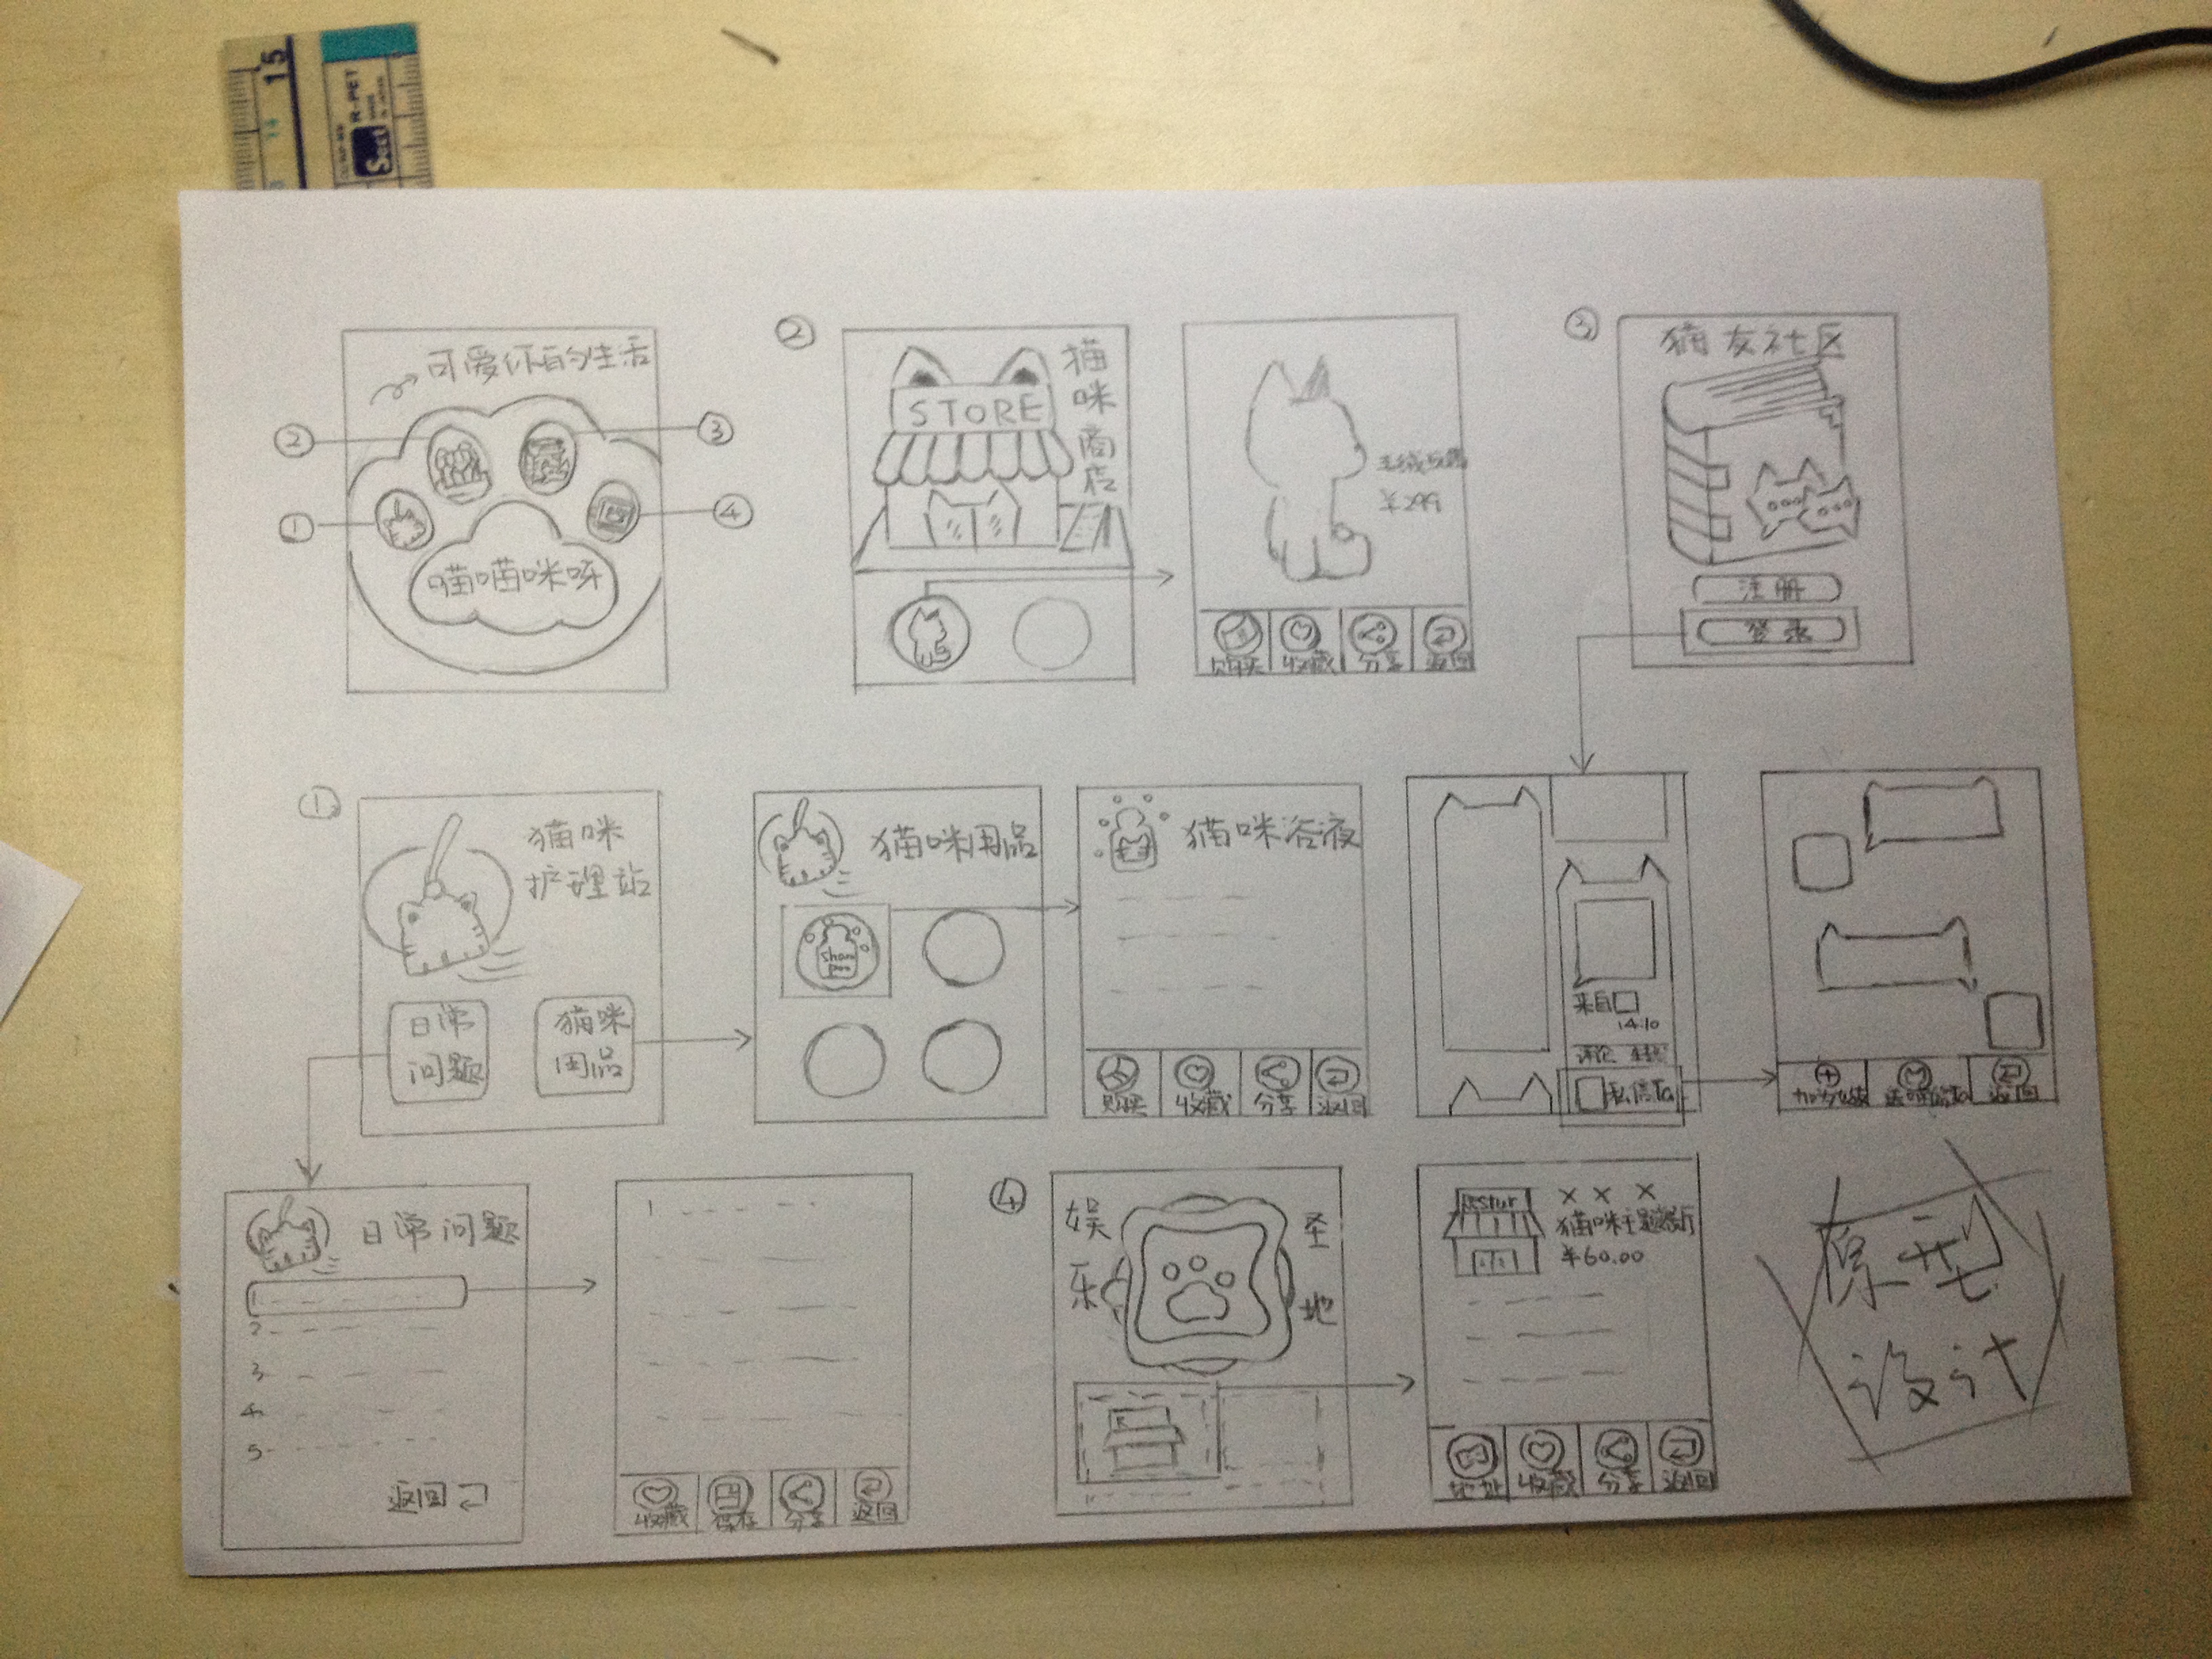 15
14
R-PET
Seed
可爱你自的生活
②
③
①
④
喵喵咪呀
②
STORE
猫咪商店
¥299
购买
收藏
分享
返回
③
猫友社区
注册
登录
①
猫咪
护理站
日常
问题
猫咪
用品
猫咪用品
sham
poo
猫咪浴液
购买
收藏
分享
返回
来自
14:10
评论
私信Ta
返回
日常问题
1
2
3
4
5
返回
1
收藏
保存
分享
返回
④
娱乐
圣地
Restur
× × ×
猫咪主题餐厅
¥60.00
地址
收藏
分享
返回
原型
设计